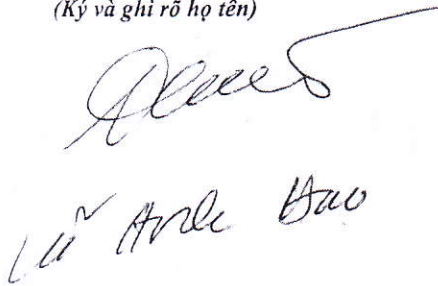 (Ký và ghi rõ họ tên)
Vũ Anh Hào